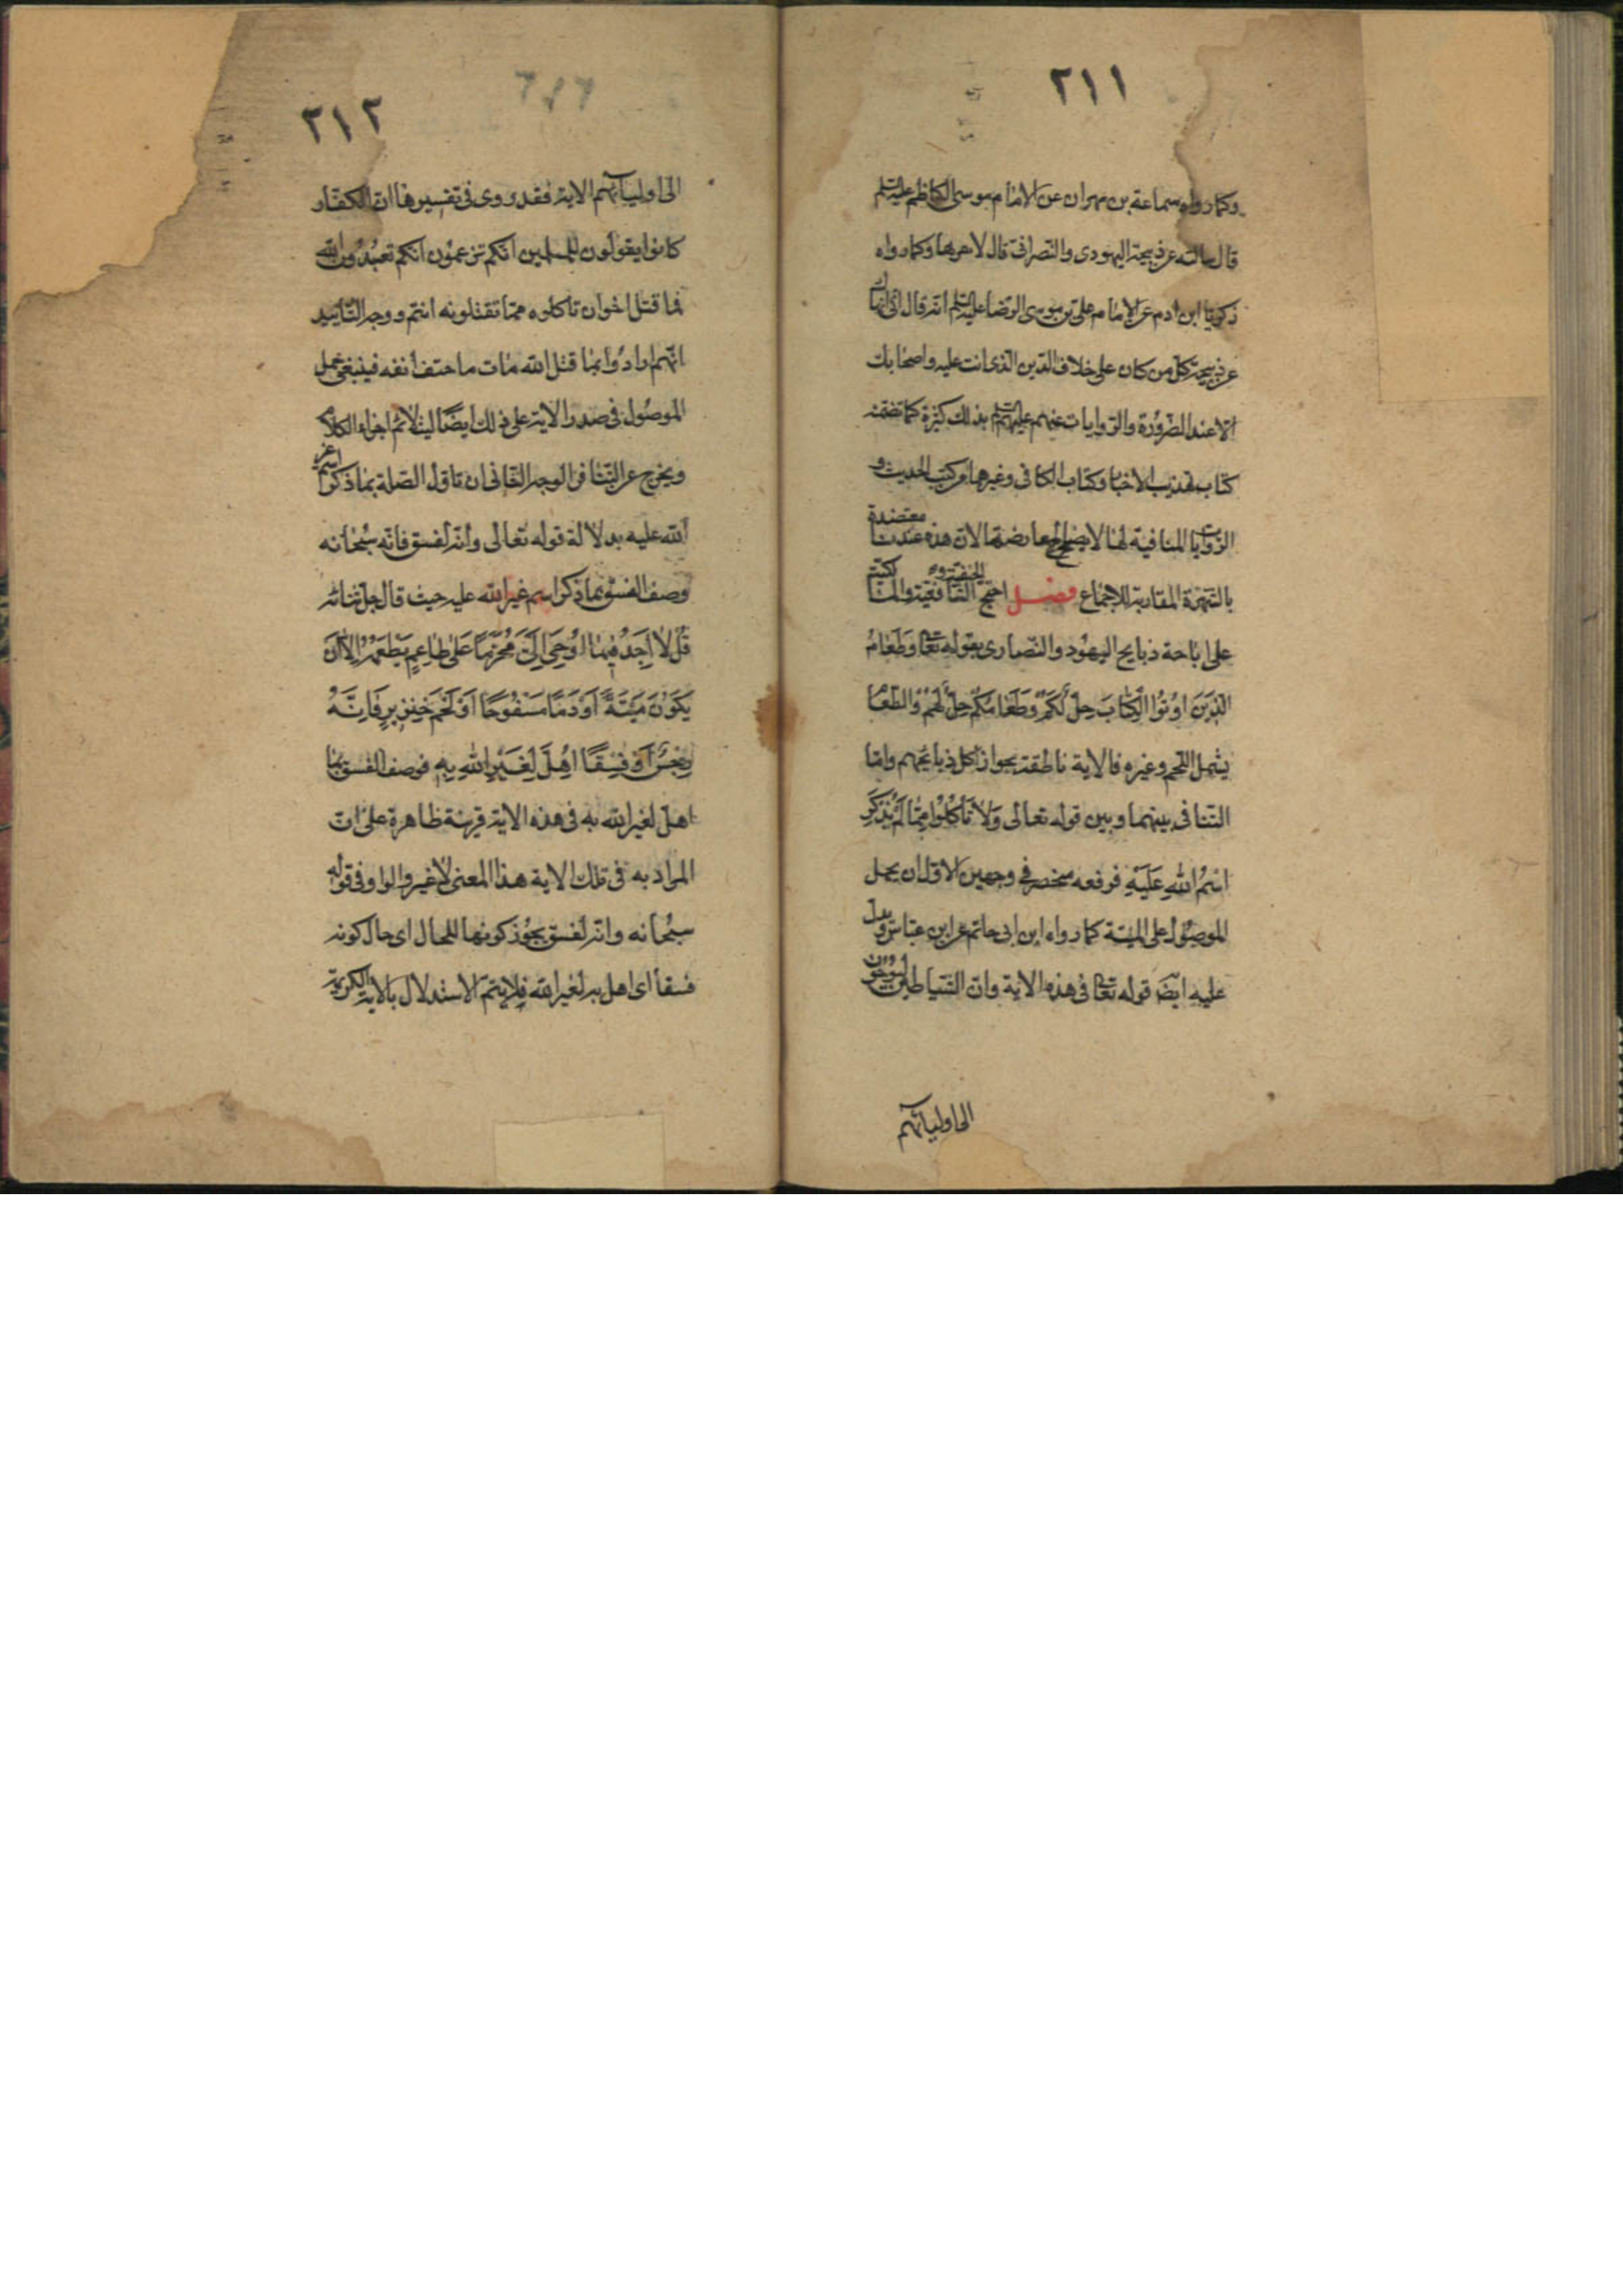 ٢١١
وكما رواه سماعة بن مهران عن الامام موسى الكاظم عليه السلم
قال سالته عن ذبيحة اليهودى والنصرانى قال لا تقربها وكما رواه
زكريا ابن ادم عن الامام على بن موسى الرضا عليه السلم انه قال انى انهاك
عن ذبيحة كل من كان على خلاف الدين الذى انت عليه واصحابك
الا عند الضرورة والروايات عنهم عليهم السلم بذلك كثيرة كما تضمنه
كتاب تهذيب الاخبار وكتاب الكافى وغيرهما من كتب الحديث و
الروايات المنافية لها لا يصلح لمعارضتها لان هذه معتضدة عندنا
بالشهرة المقاربة للاجماع فصل احتج الحنفية والشافعية والمالكية
على اباحة ذبايح اليهود والنصارى بقوله تعالى وَطَعَامُ
الَّذِينَ اوُتُوا الْكِتَابَ حِلٌّ لَكُمْ وَطَعَامُكُمْ حِلٌّ لَهُمْ والطعام
يشمل اللحم وغيره فالاية ناطقة بجواز اكل ذبايحهم واما
التنافى بينهما وبين قوله تعالى وَلَا تَأكُلُوا مِمَّا لَمْ يُذْكَرِ
اسْمُ اللهِ عَلَيْهِ فرفعه منحصر فى وجهين الاول ان يحمل
الموصول على الميتة كما رواه ابن ابى حاتم عن ابن عباس ويدل
عليه ايضا قوله تعالى فى هذه الاية وان الشياطين ليوحون
الى اوليائهم
٢١٢
الى اوليائهم الاية فقد روى فى تفسيرها ان الكفار
كانوا يقولون للمسلمين انكم تزعمون انكم تعبدون الله
فما قتل الله احق ان تاكلوه مما تقتلونه انتم ووجه التاييد
انهم ارادوا بما قتل الله ما مات حتف انفه فينبغى حمل
الموصول فى صدر الاية على ذلك ايضًا ليتلائم اجزاء الكلام
ويخرج عن التنافر الوجه الثانى ان تاول الصلة بما ذكر اسم غير
الله عليه بدلالة قوله تعالى وانه لفسق فانه سبحانه
وصف الفسق بما ذكر اسم غير الله عليه حيث قال جل ثنائه
قُلْ لَا اَجِدُ فِيمَا اُوحِىَ اِلَىَّ مُحَرَّمًا عَلَى طَاعِمٍ يَطْعَمُهُ اِلَّا اَنْ
يَكُونَ مَيْتَةً اَوْ دَمًا مَسْفُوحًا اَوْ لَحْمَ خِنْزِيرٍ فَاِنَّهُ
رِجْسٌ اَوْ فِسْقًا اُهِلَّ لِغَيْرِ اللهِ بِهِ فوصف الفسق بما
اهل لغير الله به فى هذه الاية قرينة ظاهرة على ان
المراد به فى تلك الاية هذا المعنى لا غير والواو فى قوله
سبحانه وانه لفسق يجوز كونها للحال اى حال كونه
فسقا اى اهل به لغير الله فلا يتم الاستدلال بالاية الكريمة